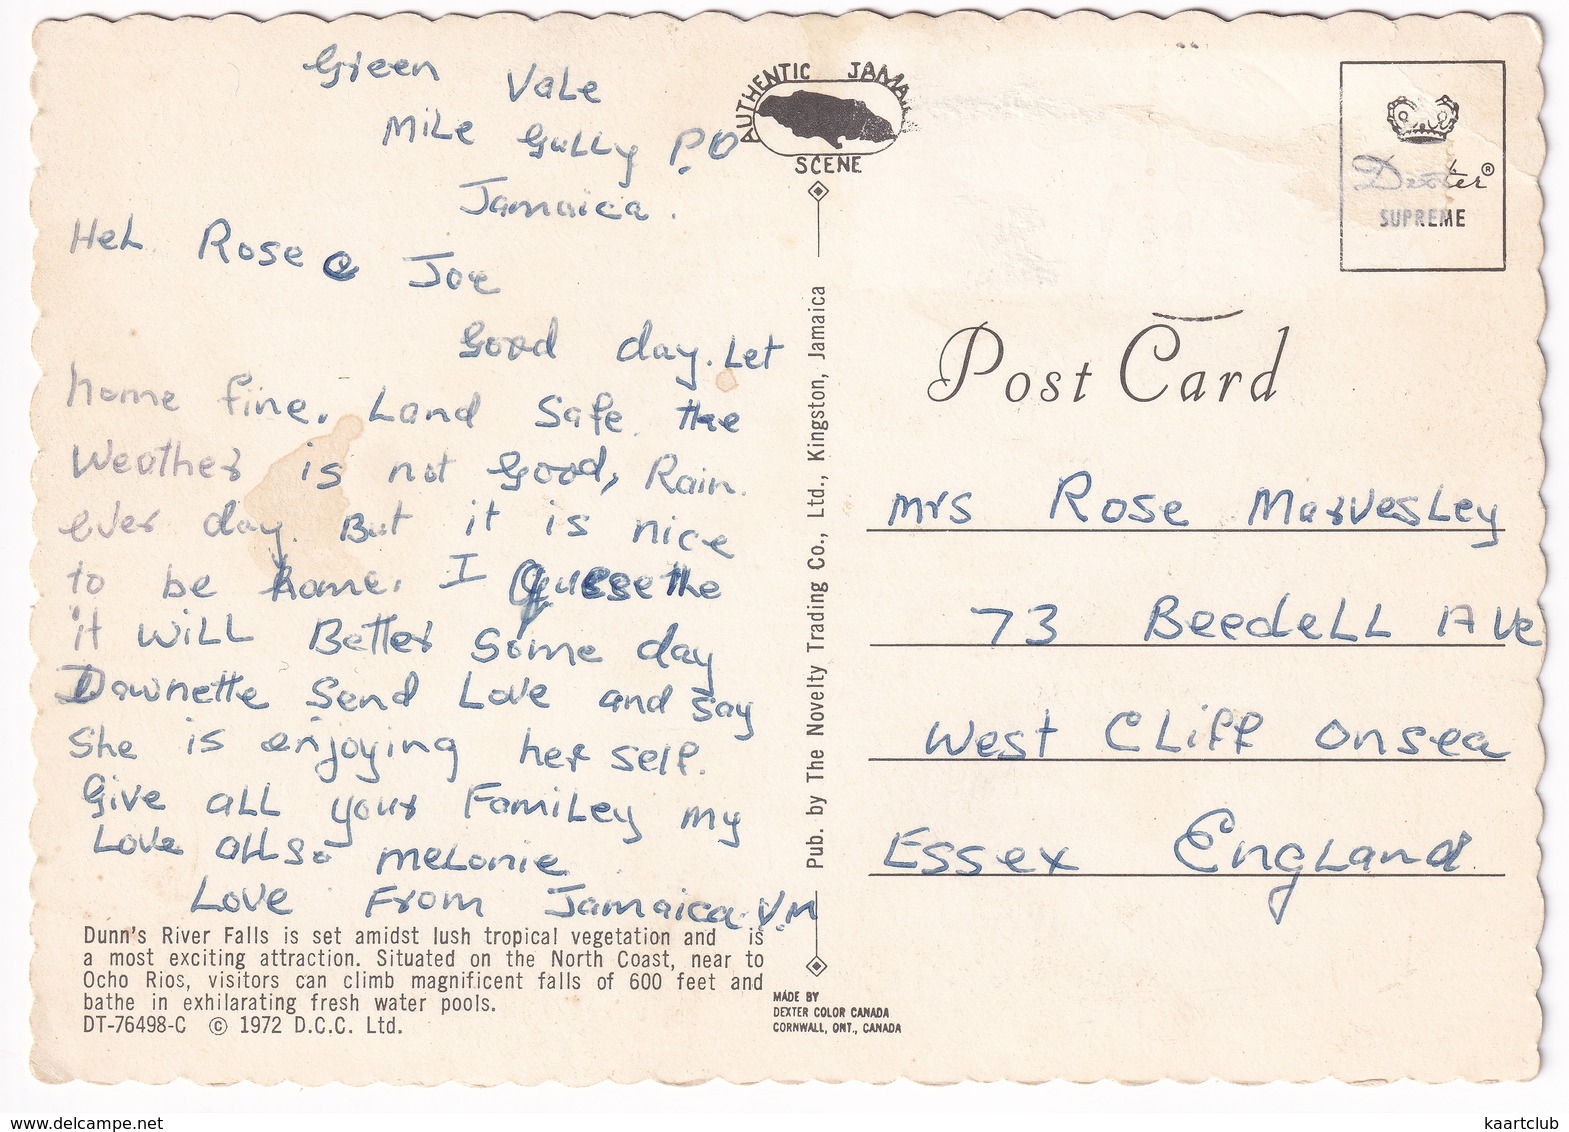 Green Vale
Mile Gully P.O
Jamaica.
HeL Rose e Joe
Good day. Let
home fine. Land Safe. the
Weather is not Good, Rain.
ever day. But it is nice
to be home. I Guess the
it WiLL Better Some day
Dawnette Send Love and say
She is enjoying her self.
Give aLL your FamiLey my
Love aLLso meLonie
Love From Jamaica. V.M
Dunn's River Falls is set amidst lush tropical vegetation and is
a most exciting attraction. Situated on the North Coast, near to
Ocho Rios, visitors can climb magnificent falls of 600 feet and
bathe in exhilarating fresh water pools.
DT-76498-C © 1972 D.C.C. Ltd.
AUTHENTIC JAMAI
SCENE
Pub. by The Novelty Trading Co., Ltd., Kingston, Jamaica
MADE BY
DEXTER COLOR CANADA
CORNWALL, ONT., CANADA
Dexter®
SUPREME
Post Card
mrs Rose MarvesLey
73 BeedeLL Ave
West CLiff onsea
Essex EngLand
www.delcampe.net
kaartclub